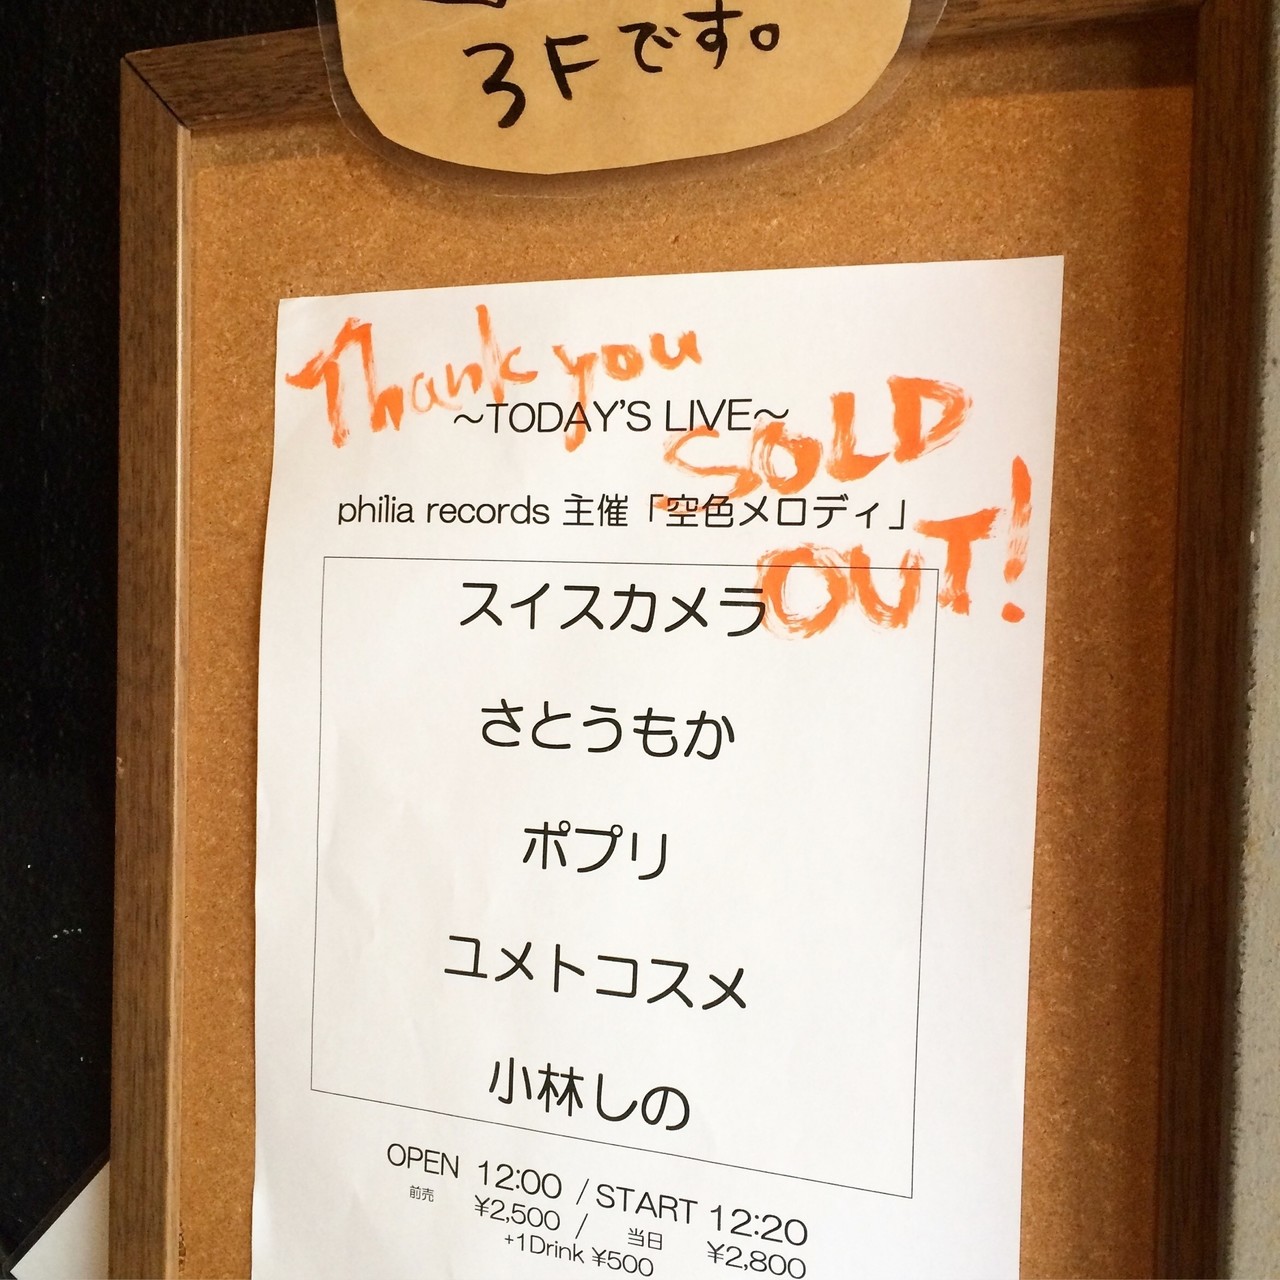 3Fです。
Thank you
～TODAY'S LIVE～
SOLD
philia records 主催「空色メロディ」
OUT!
スイスカメラ
さとうもか
ポプリ
ユメトコスメ
小林しの
OPEN 12:00 / START 12:20
前売 ¥2,500 / 当日 ¥2,800
+1Drink ¥500